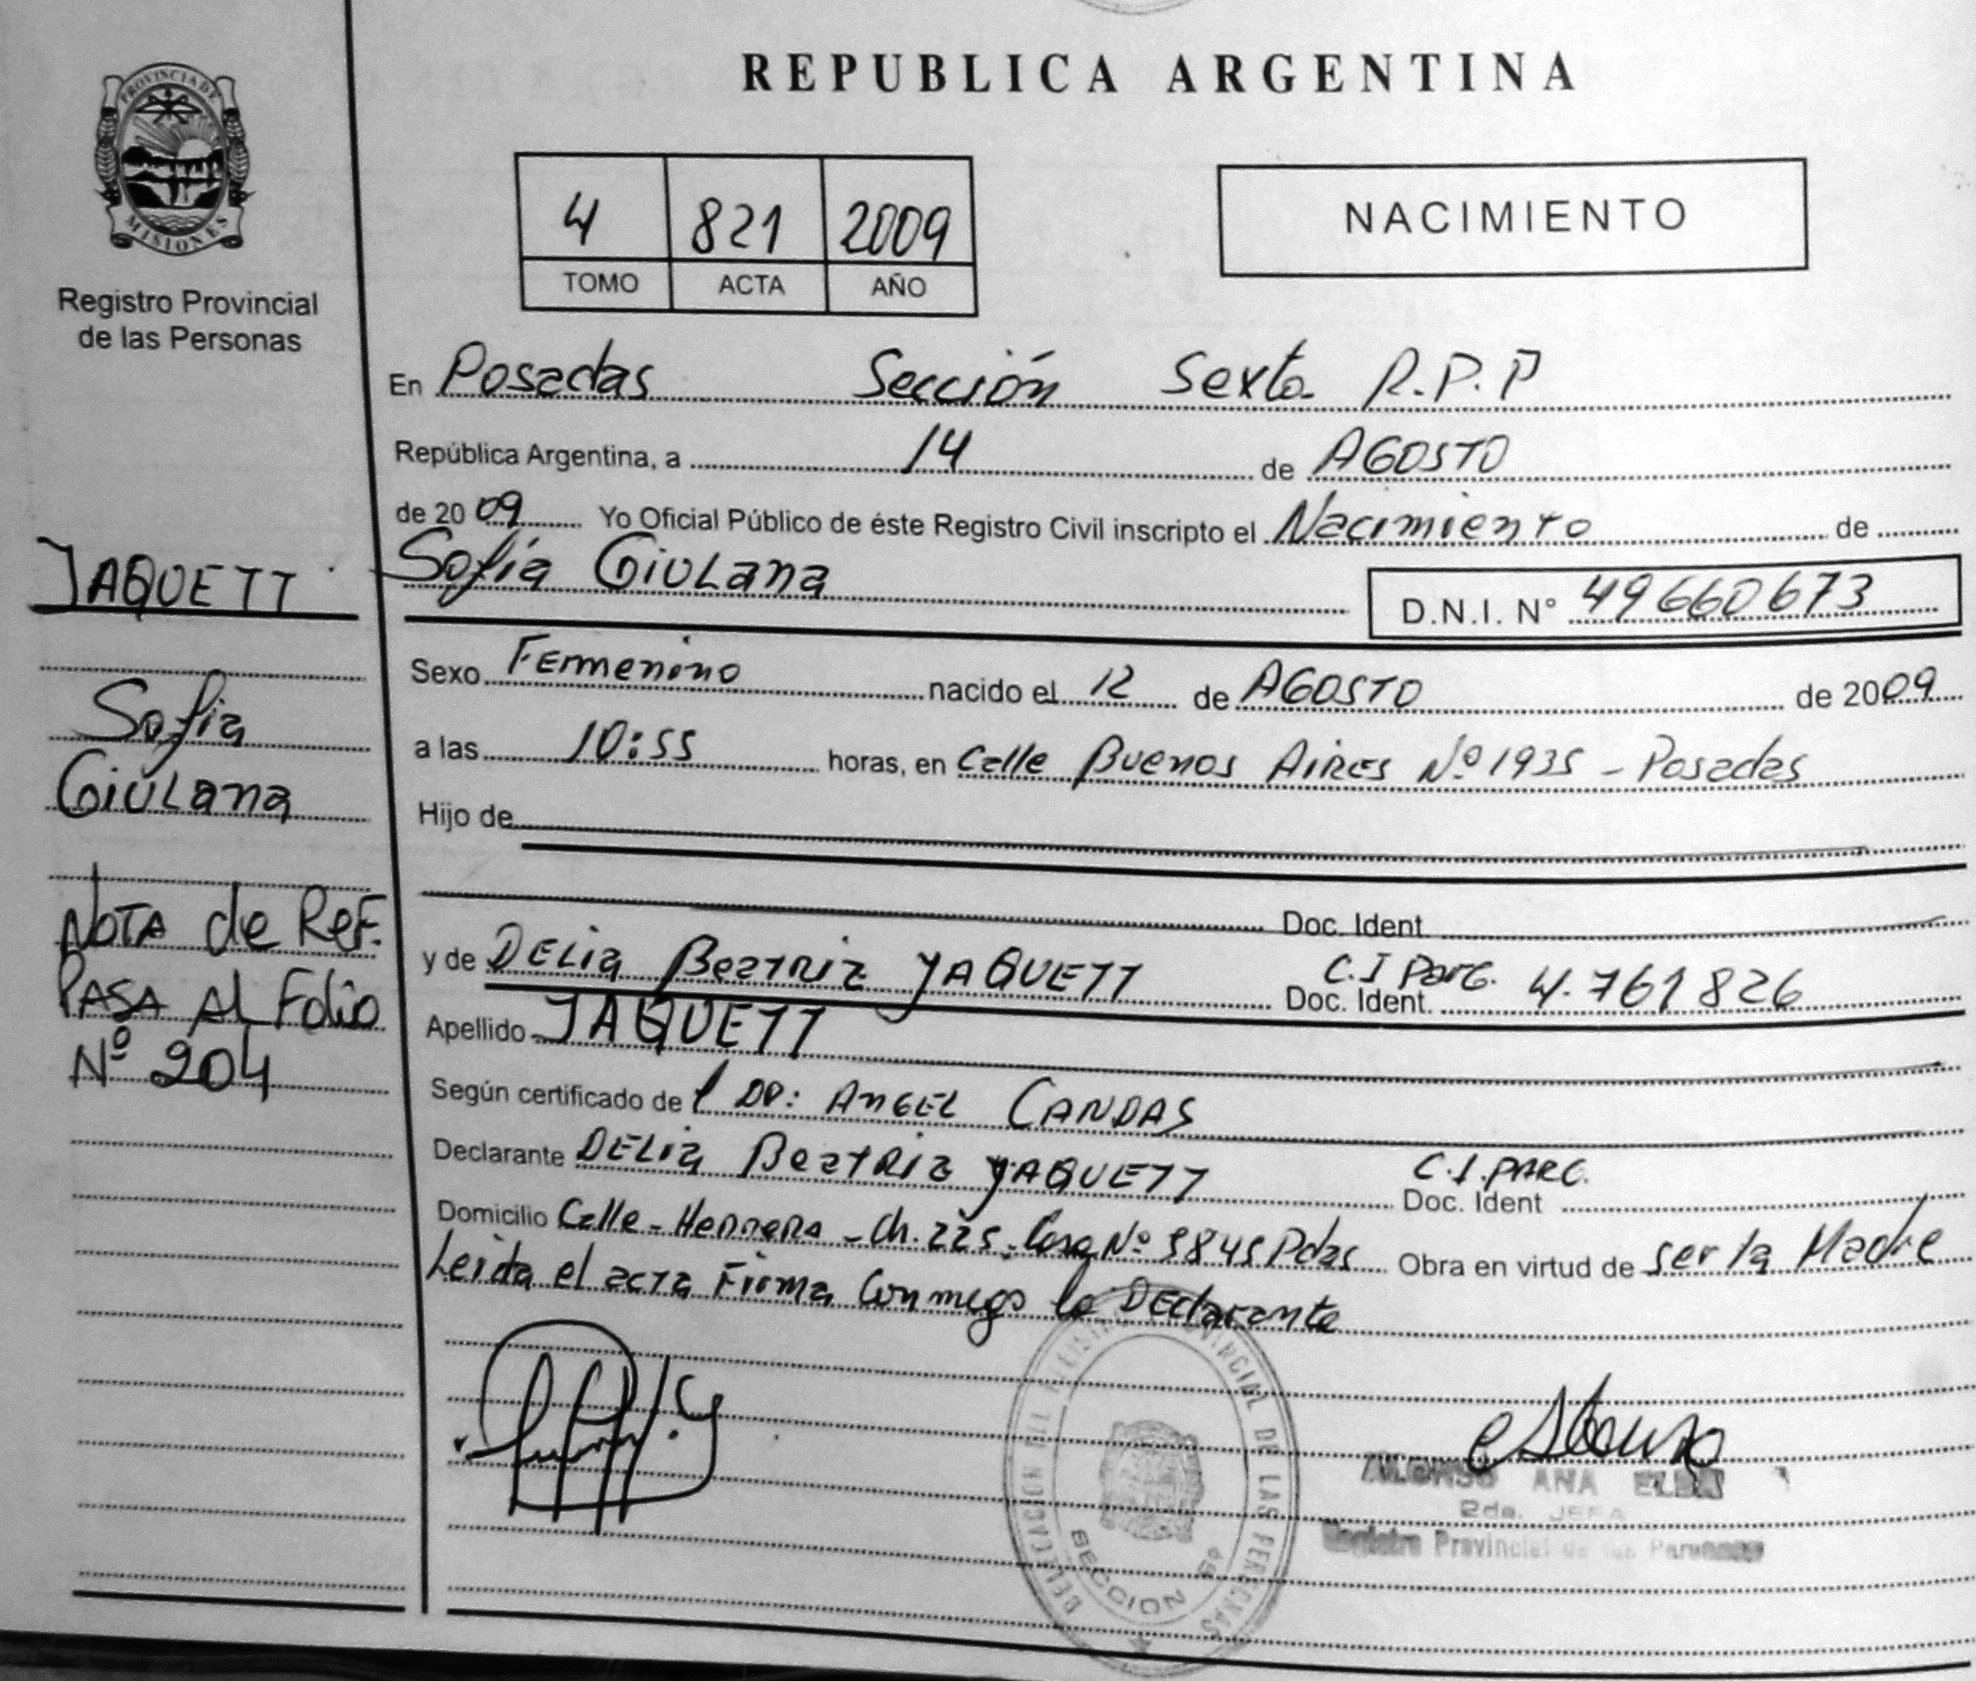 REPUBLICA ARGENTINA
PROVINCIA DE
MISIONES
Registro Provincial
de las Personas
4 821 2009
TOMO ACTA AÑO
NACIMIENTO
En Posadas Sección Sexta R.P.P
República Argentina, a 14 de AGOSTO
de 20 09 Yo Oficial Público de éste Registro Civil inscripto el Nacimiento de
JAQUETT Sofía GiuLana
D.N.I. N° 49660673
Sexo Femenino nacido el 12 de AGOSTO de 2009
Sofia
a las 10:55 horas, en Calle Buenos Aires Nº 1935 - Posadas
GiuLana
Hijo de
Doc. Ident
NOTA de REF.
y de DELia Beatriz YAQUETT Doc. Ident. C.I Parg. 4.761826
PASA Al Folio
Apellido JAQUETT
Nº 204
Según certificado de l DR: ANGEL CANDAS
Declarante DELia Beatriz YAQUETT Doc. Ident C.I. PARG.
Domicilio Calle - Herrera - Ch. 225. Casa Nº 3845 Pdas Obra en virtud de ser la Madre
Leida el acta Firma Conmigo la Declarante
ALONSO ANA
2da. JEFA
Registro Provincial de las Personas
DELEGACION DEL REGISTRO PROVINCIAL DE LAS PERSONAS
SECCION 6º